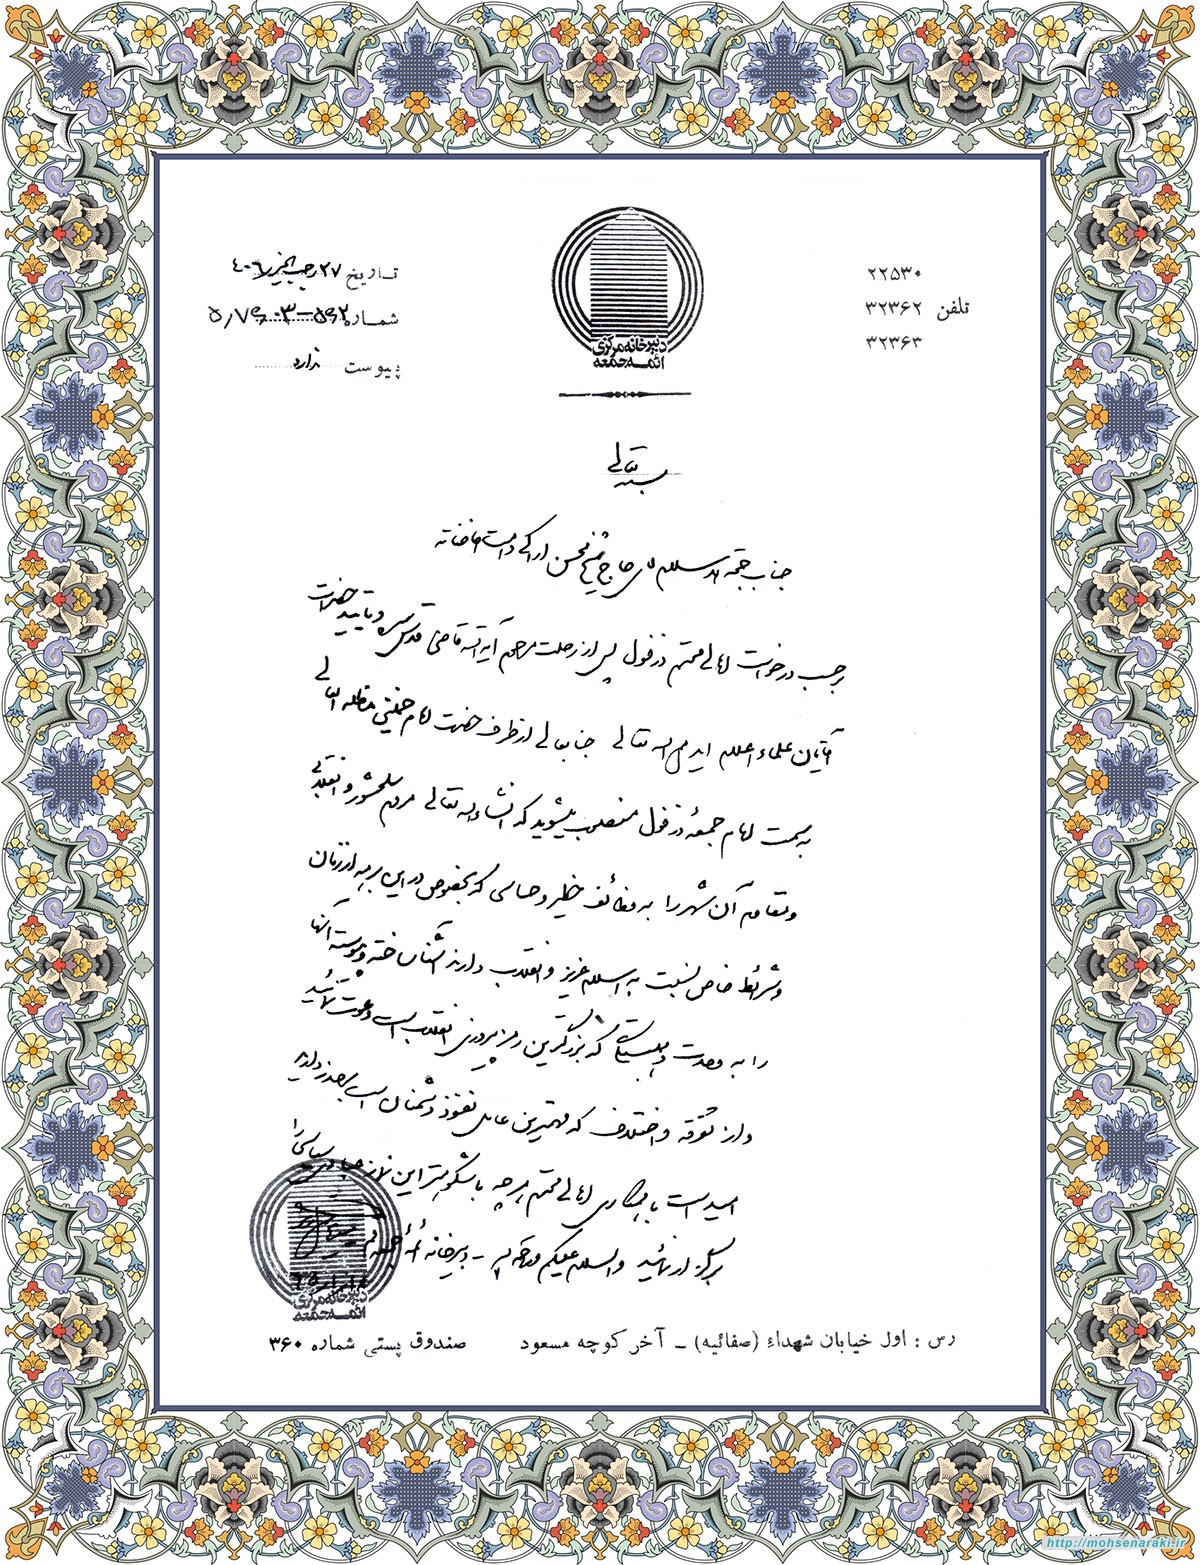 ۲۲۵۳۰
تلفن ۳۲۳۶۲
۳۲۳۶۳
دبیرخانه مرکزی
ائمه جمعه
تاریخ ۲۷ رجب الخیر ۴۰۶
شماره ۵۶۲-۰۳
پیوست ندارد
بسمه تعالی
جناب حجةالاسلام آقای حاج شیخ محسن اراکی دامت افاضاته
برحسب درخواست اهالی محترم دزفول پس از رحلت مرحوم آیةالله قاضی قدس سره و تایید حضرات
آقایان علماء اعلام ایدهم الله تعالی جنابعالی از طرف حضرت امام خمینی مدظله العالی
به سمت امام جمعهٔ دزفول منصوب میشوید که انشاءالله تعالی مردم سلحشور و انقلابی
و مقاوم آن شهر را به وظائف خطیر و حساسی که بخصوص در این برهه از زمان
و شرائط خاص نسبت به اسلام عزیز و انقلاب دارند آشنا ساخته و پیوسته آنها
را به وحدت و همبستگی که بزرگترین رمز پیروزی انقلاب است دعوت نمائید
و از تفرقه و اختلاف که مهمترین عامل نفوذ دشمنان است برحذر دارید
امید است با همکاری اهالی محترم هرچه باشکوهتر این نماز عبادی سیاسی را
برگزار نمائید والسلام علیکم ورحمة الله - دبیرخانه ائمه جمعه قم
دبیرخانه مرکزی
ائمه جمعه
رس : اول خیابان شهداء (صفائیه) - آخر کوچه مسعود صندوق پستی شماره ۳۶۰
http://mohsenaraki.ir